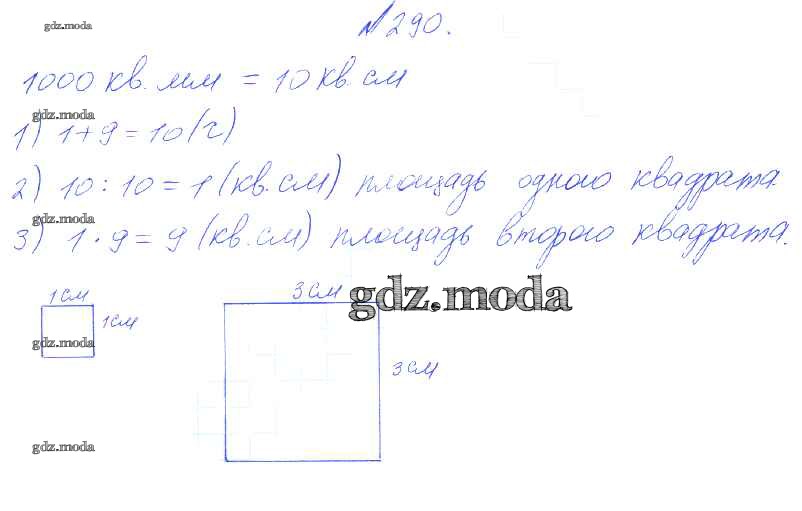 gdz.moda
№ 290.
1000 кв. мм = 10 кв. см
gdz.moda
1) 1 + 9 = 10 (ч)
2) 10 : 10 = 1 (кв. см) площадь одного квадрата.
gdz.moda
3) 1 · 9 = 9 (кв. см) площадь второго квадрата.
1 см 3 см gdz.moda
1 см
gdz.moda
3 см
gdz.moda